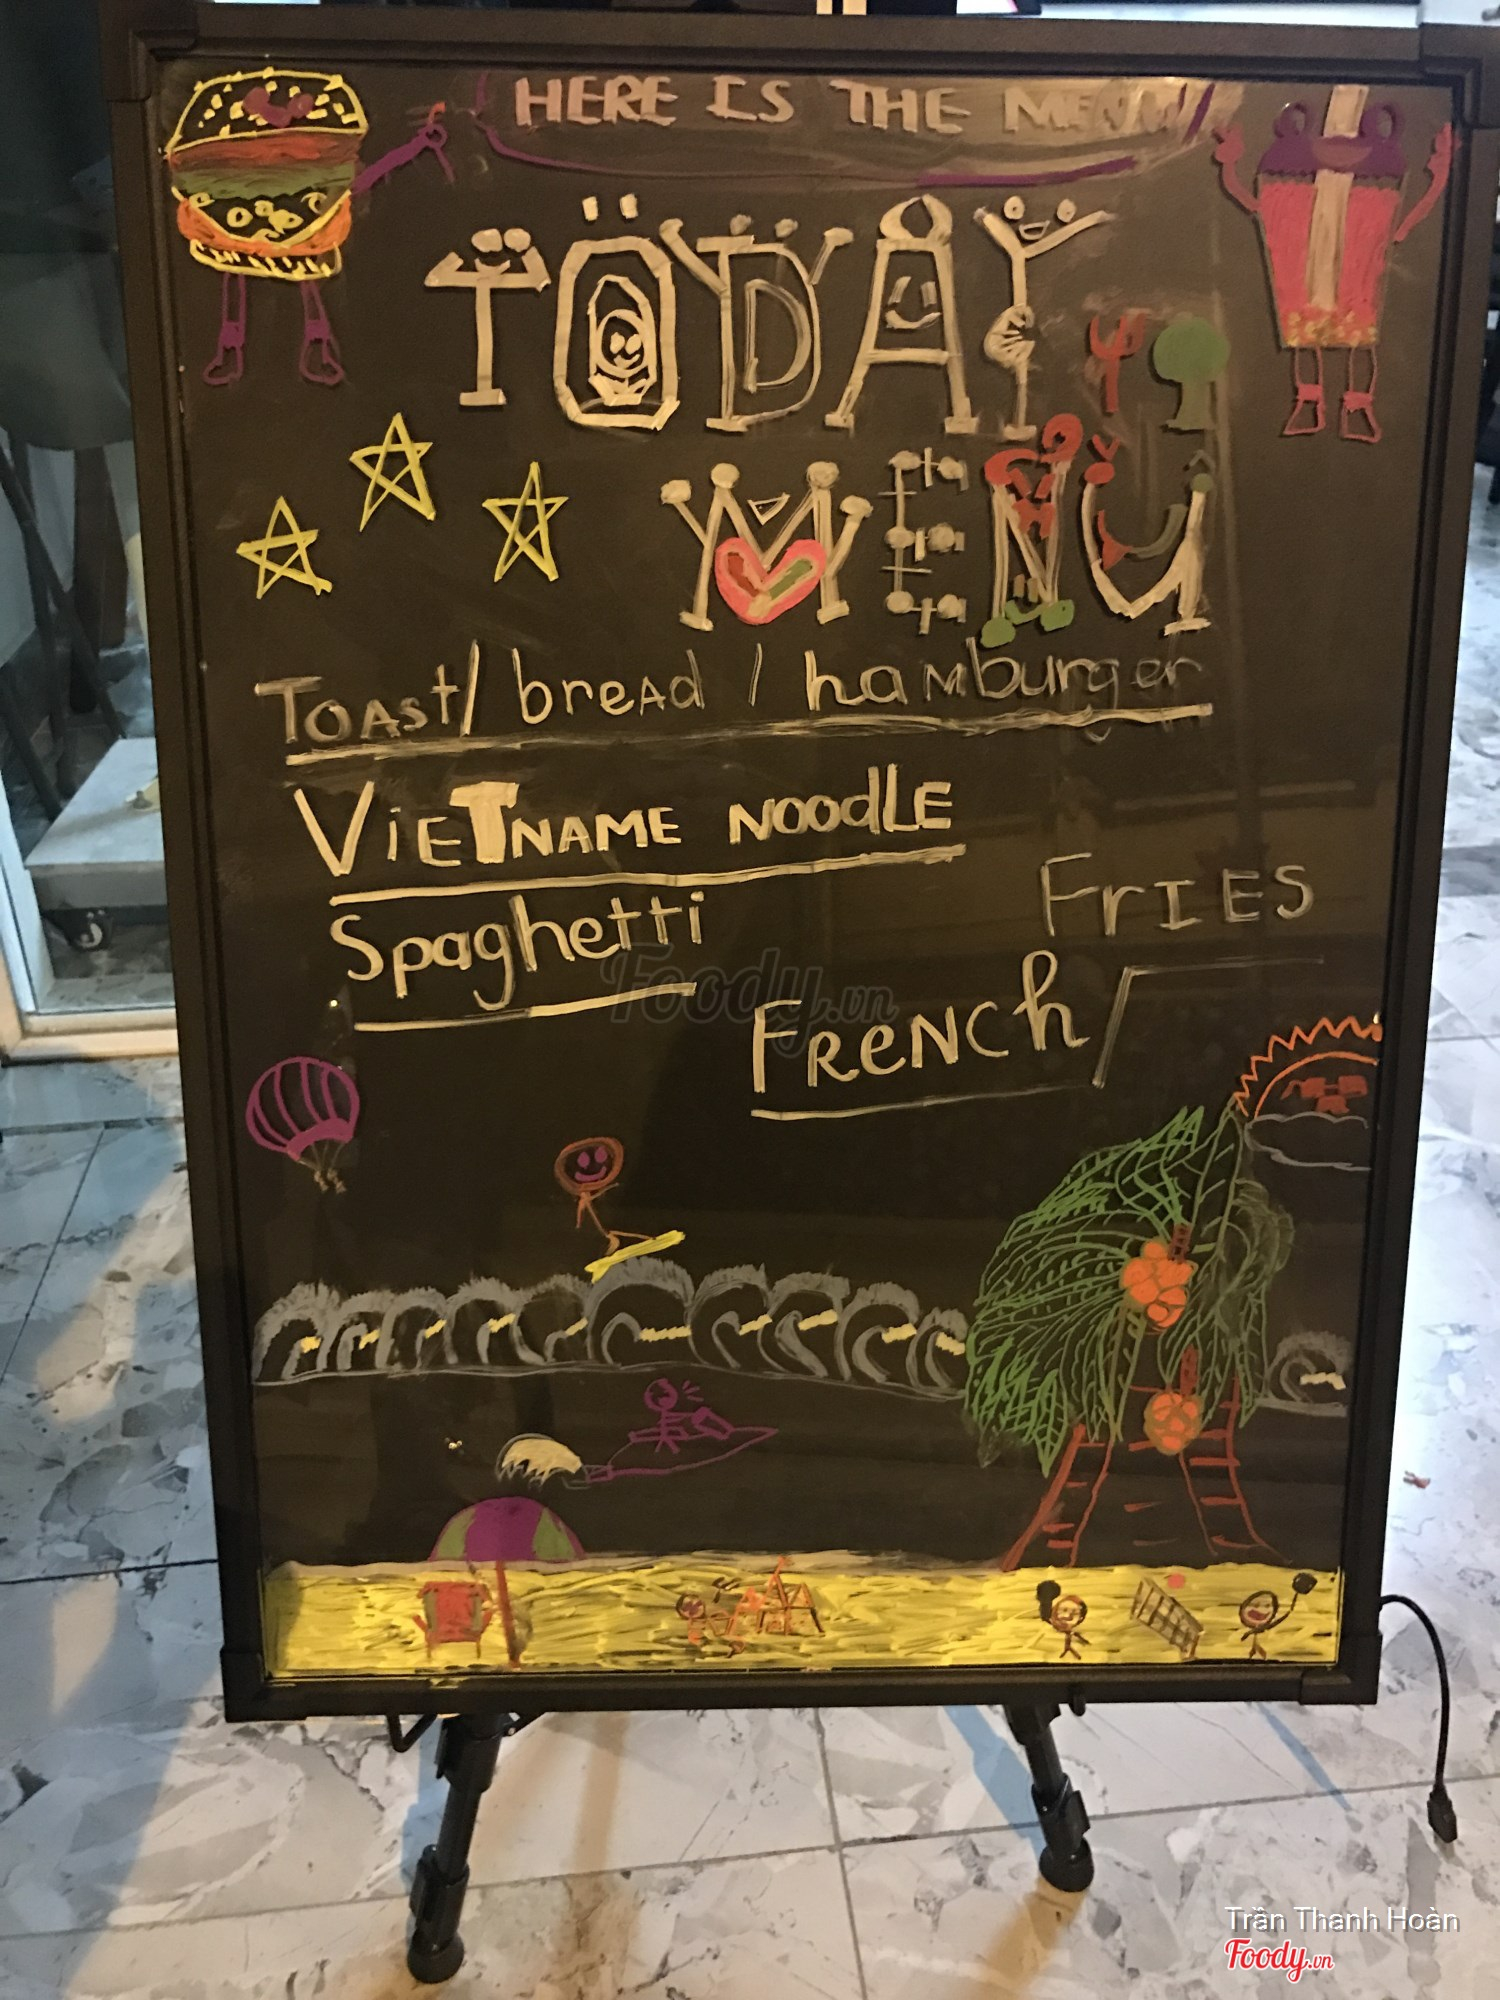 HERE IS THE MENU
TODAY
MENU
TOAst/ breAd / haMburger
VieTNAME NOOdLE
Spaghetti
FrIES
FReNCh/
Foody.vn
Trần Thanh Hoàn
Foody.vn